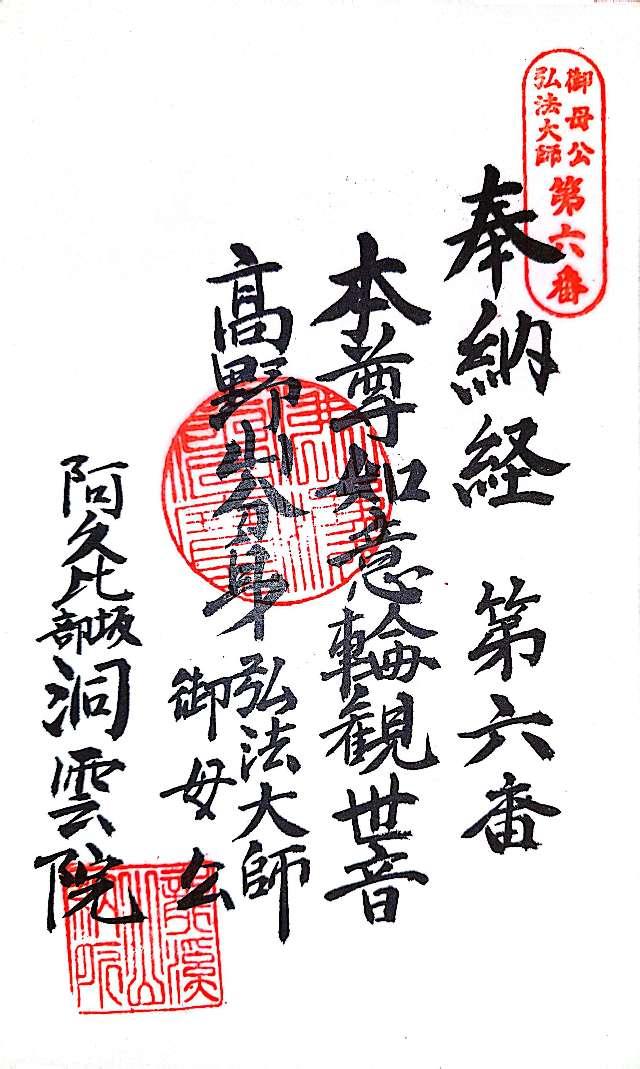 御母公
弘法大師
第六番
奉納経 第六番
本尊如意輪観世音
高野山分身 弘法大師
御母公
阿久比坂部 洞雲院